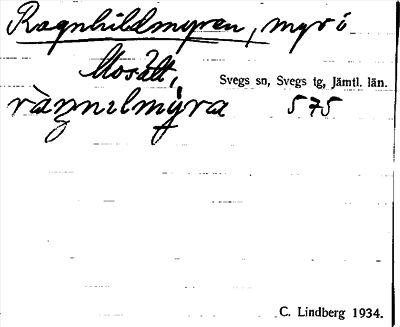 Ragnhildmyran, myr i
Mosätt,
Svegs sn, Svegs tg, Jämtl. län.
ràŋnɩlmy̌ra 575
C. Lindberg 1934.